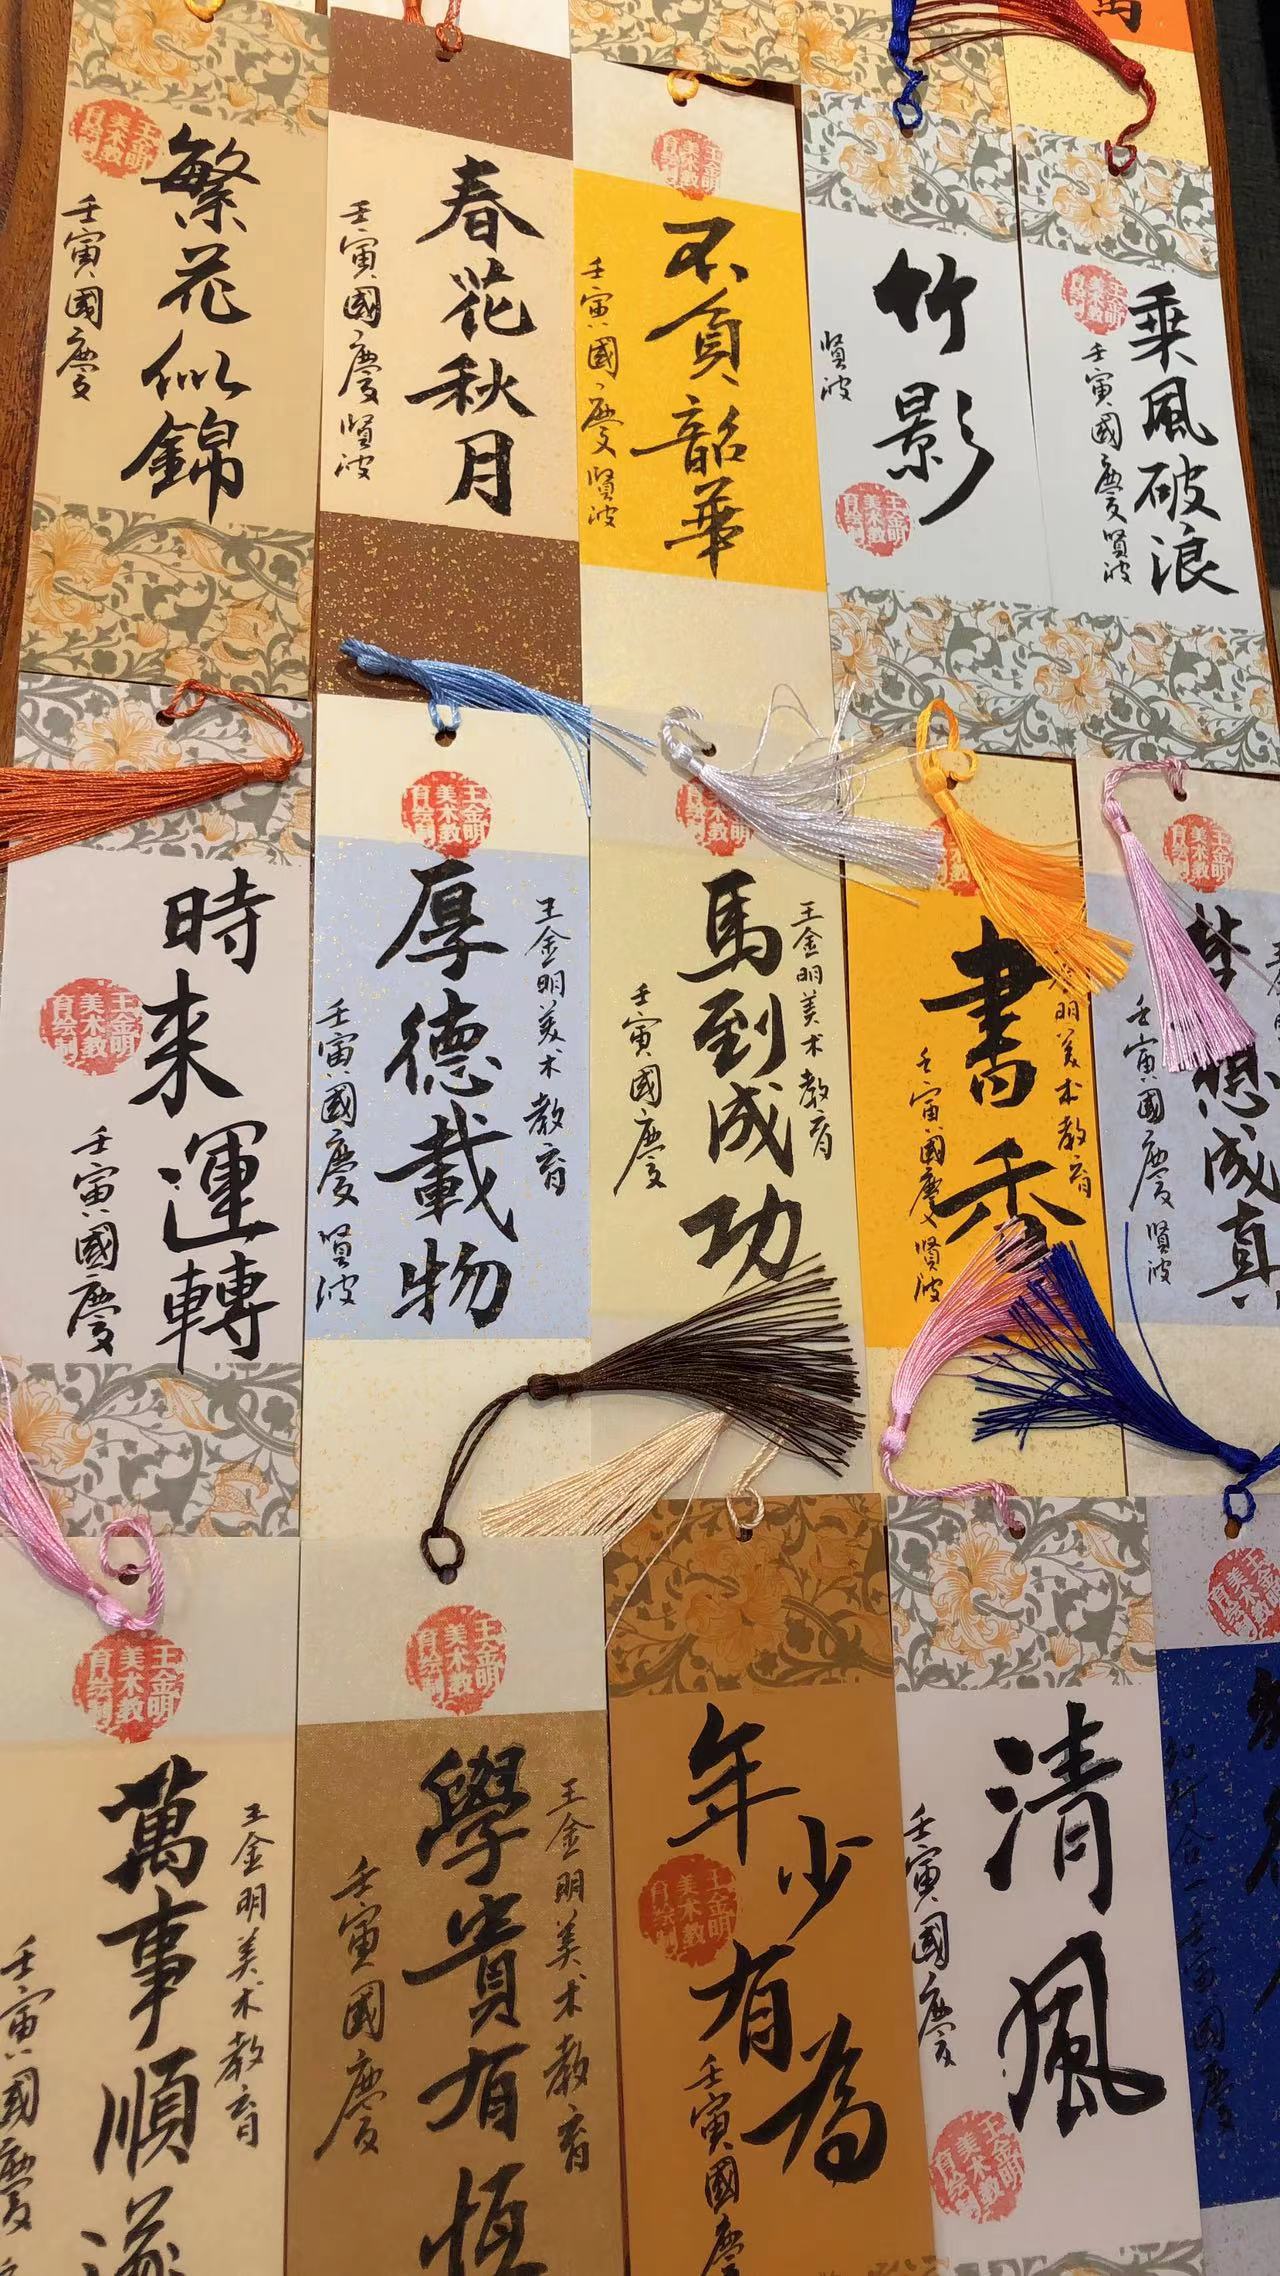 繁花似錦
壬寅國慶
王金明美术教育绘制
春花秋月
壬寅國慶賢波
不負韶華
壬寅國慶賢波
王金明美术教育绘制
竹影
賢波
王金明美术教育绘制
乘風破浪
壬寅國慶賢波
王金明美术教育绘制
時来運轉
壬寅國慶
王金明美术教育绘制
王金明美术教育
厚德載物
壬寅國慶賢波
王金明美术教育绘制
王金明美术教育
馬到成功
壬寅國慶
王金明美术教
明美术教育
書香
壬寅國慶賢波
想成真
壬寅國慶賢波
王金明美术教育绘制
王金明美术教育
萬事順遂
壬寅國慶
王金明美术教育绘制
王金明美术教育
學貴有恒
壬寅國慶
王金明美术教育绘制
年少有為
壬寅國慶
王金明美术教育绘制
清風
壬寅國慶
王金明美术教育绘制
知行合一壬寅國慶